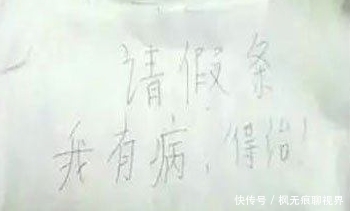 请假条
我有病，得治！
快传号／枫无痕聊视界